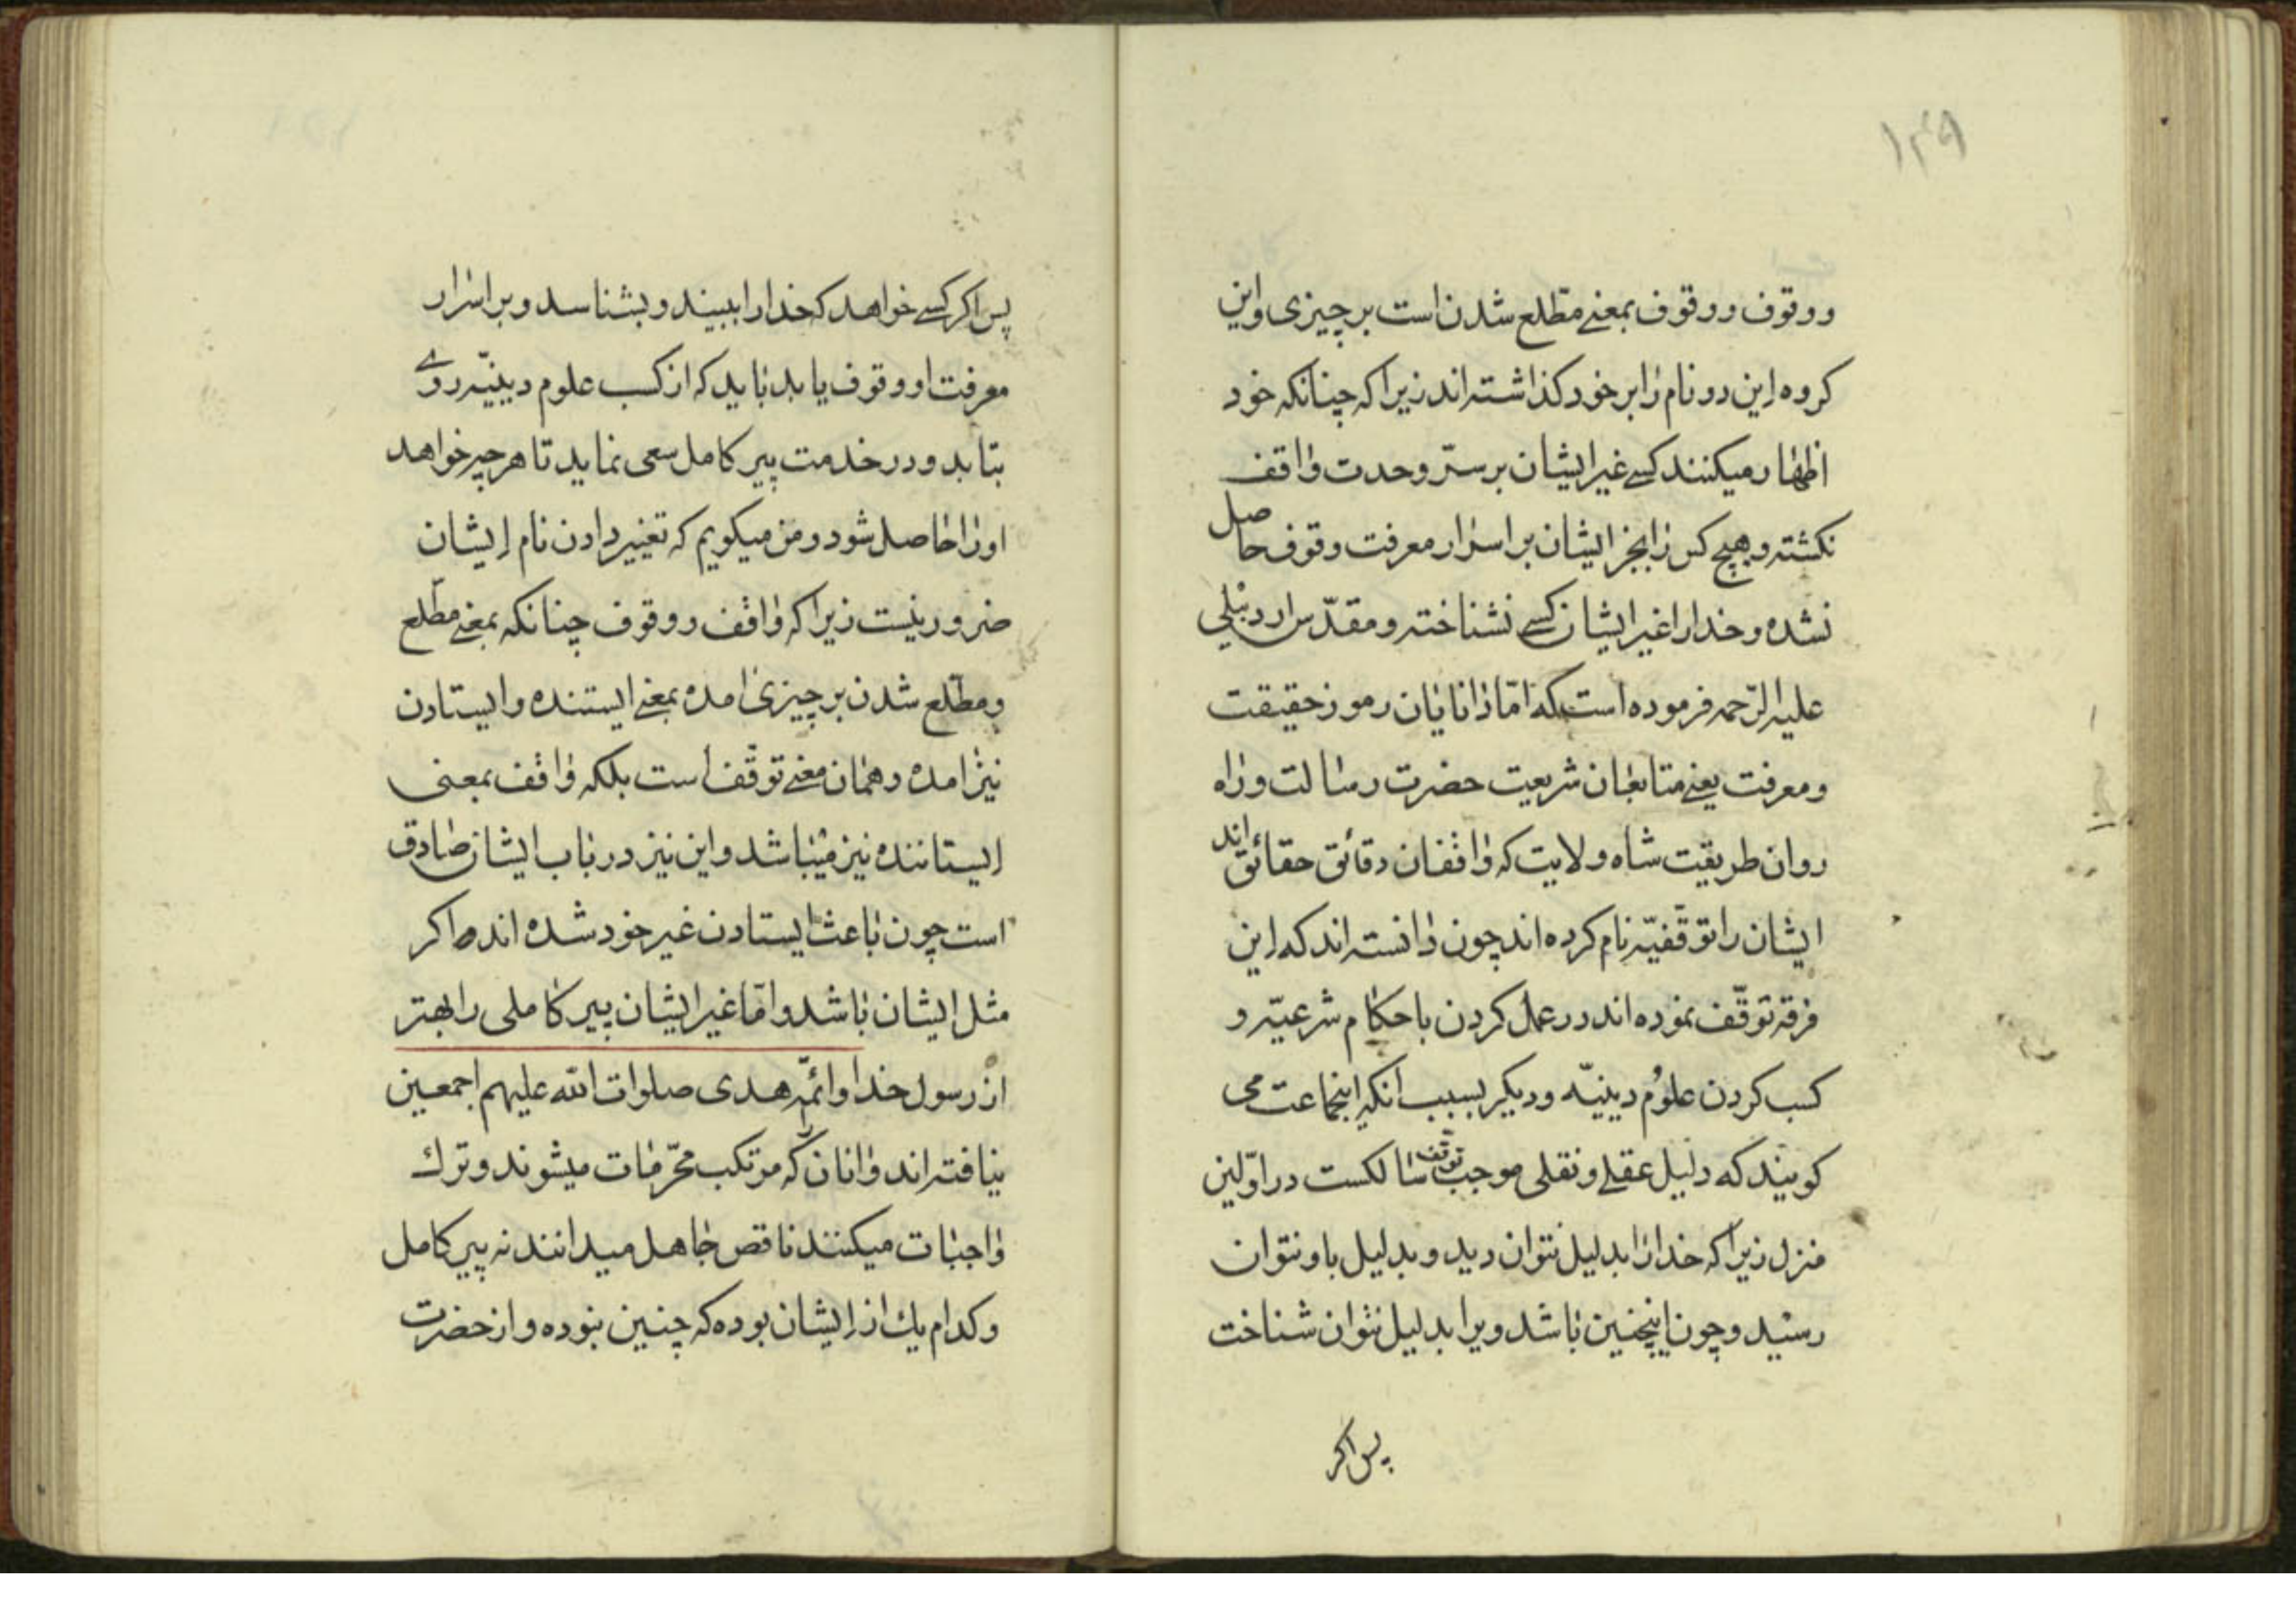 ۱۴۹
ووقوف ووقوف بمعنے مطّلع شدن است بر چیزی واین
کروه این دو نام را بر خود کذاشته اند زیرا که چنانکه خود
اظهار میکنند کسے غیر ایشان بر سرّ وحدت واقف
نکشته وهیچ کس را بجز ایشان بر اسرار معرفت وقوف حاصل
نشده وخدا را غیر ایشان کسے نشناخته ومقدّس اردبیلی
علیه الرّحمه فرموده است که امّا دانایان رموز حقیقت
ومعرفت یعنے متابعان شریعت حضرت رسالت وراه
روان طریقت شاه ولایت که واقفان دقائق حقائق اند
ایشان را توقّفیّه نام کرده اند چون دانسته اند که این
فرقه توقّف نموده اند در عمل کردن باحکام شرعیّه و
کسب کردن علوُم دینیّه ودیکر بسبب انکه اینجماعت می
کویند که دلیل عقلے ونقلی موجب توقف سالکست در اوّلین
منزل زیرا که خدا را بدلیل نتوان دید وبدلیل باو نتوان
رسید وچون اینچنین باشد ویرا بدلیل نتوان شناخت
پس اکر
پس اکر کسے خواهد که خدا را ببیند وبشناسد وبر اسرار
معرفت او وقوف یابد باید که از کسب علوم دینیّه روے
بتابد ودر خدمت پیر کامل سعی نماید تا هر چیر خواهد
اورا حاصل شود ومن میکویم که تغییر دادن نام ایشان
ضرور نیست زیرا که واقف ووقوف چنانکه بمعنے مطّلع
ومطّلع شدن بر چیزی امده بمعنے ایستنده وایستادن
نیز امده وهمان معنے توقّف است بلکه واقف بمعنی
ایستاننده نیز میباشد واین نیز در باب ایشان صادق
است چون باعث ایستادن غیر خود شده اند واکر
مثل ایشان باشد وامّا غیر ایشان پیر کاملی را بهتر
از رسول خدا وائمّه هدی صلوات الله علیهم اجمعین
نیافته اند وانان که مرتکب محرّمات میشوند وترك
واجبات میکنند ناقص جاهل میدانند نه پیر کامل
وکدام یك از ایشان بوده که چنین نبوده واز حضرت